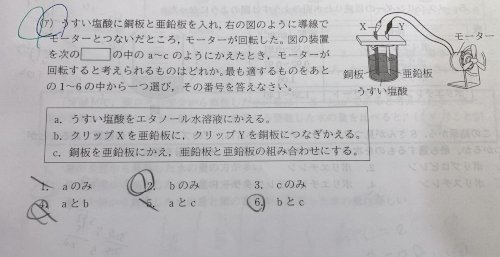 (7) うすい塩酸に銅板と亜鉛板を入れ,右の図のように導線で
モーターとつないだところ,モーターが回転した。図の装置
を次の□の中のa~cのようにかえたとき,モーターが
回転すると考えられるものはどれか。最も適するものをあと
の1~6の中から一つ選び,その番号を答えなさい。
X
Y
モーター
銅板
亜鉛板
うすい塩酸
a. うすい塩酸をエタノール水溶液にかえる。
b. クリップXを亜鉛板に,クリップYを銅板につなぎかえる。
c. 銅板を亜鉛板にかえ,亜鉛板と亜鉛板の組み合わせにする。
1. aのみ 2. bのみ 3. cのみ
4. aとb 5. aとc 6. bとc